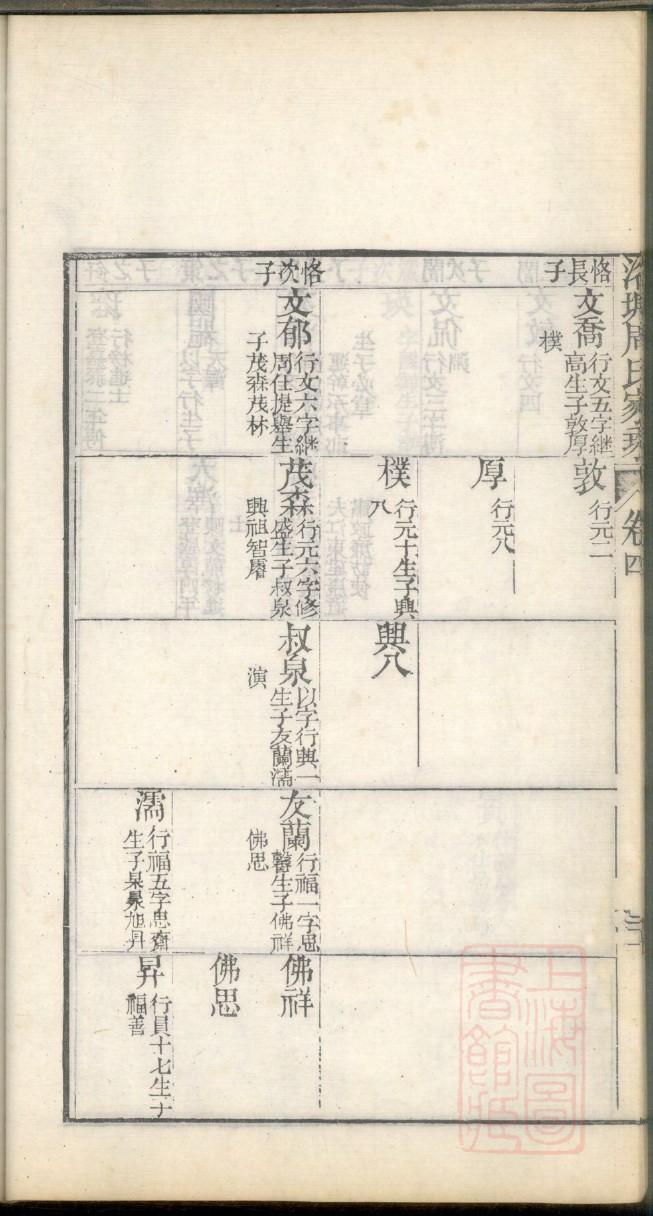 周氏家
卷四
恪長子
文喬
行文五字継
高生子敦厚
樸
敦
行元二
厚
行元八
樸
行元十生子興
八
興八
恪次子
文郁
行文六字継
周任提舉生
子茂森茂林
茂森
行元六字修
盛生子叔泉
興祖智
叔泉
以字行興一
生子友蘭濡
演
友蘭
行福一字思
馨生子佛祥
佛思
濡
行福五字思齋
生子杲景旭昇
佛祥
佛思
昇
行員十七生子
福善
上海圖
書館藏